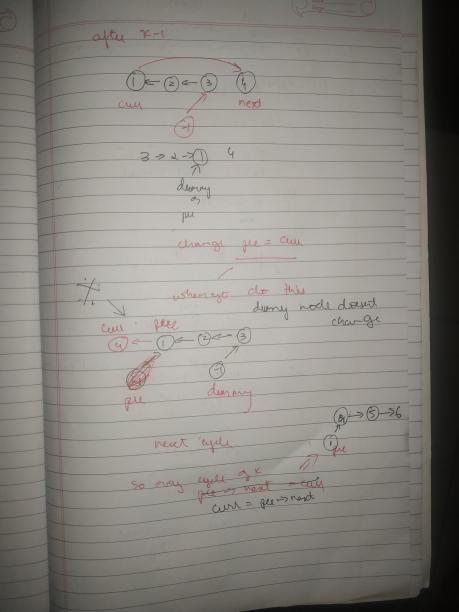 after K-1
1 ← 2 ← 3 4
curr next
-1
3 → 2 → 1 4
dummy
pre
change pre = curr
when you do this
dummy node doesn't
change
curr pre
4 ← 1 ← 2 ← 3
-1
pre dummy
4 → 5 → 6
1
pre
next cycle
So every cycle of K
pre → next = curr
curr = pre → next